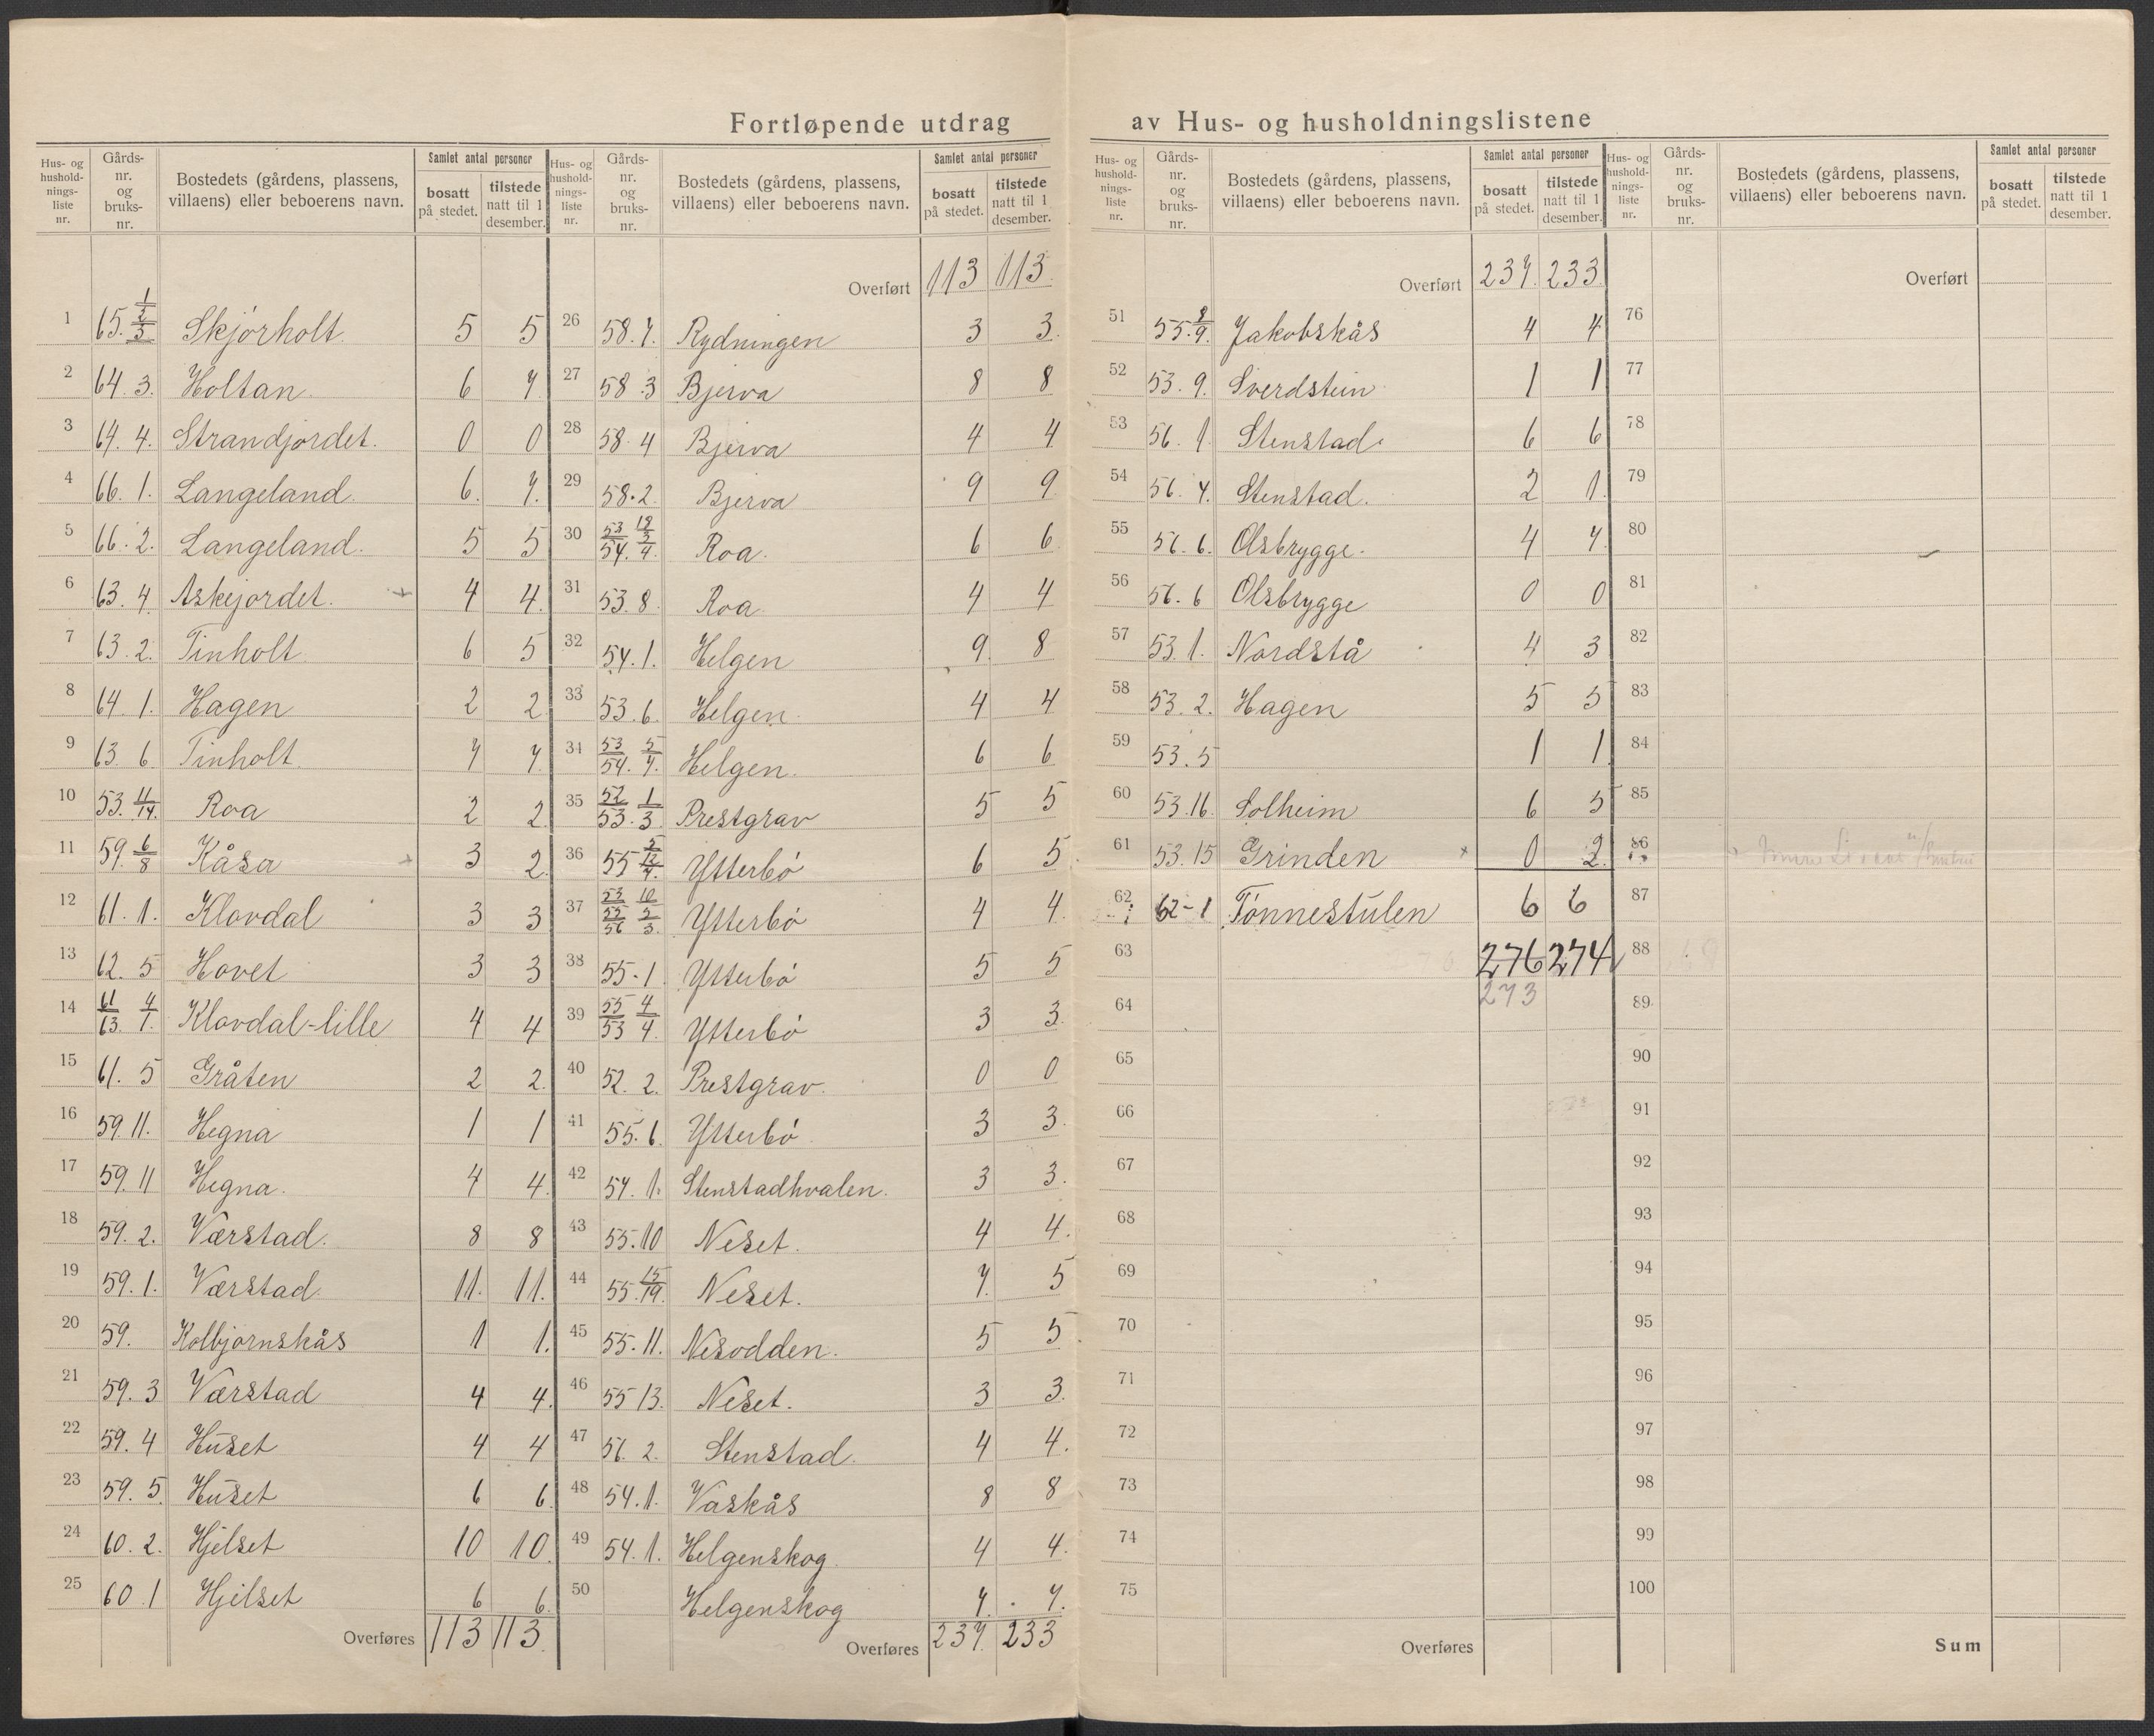 Fortløpende utdrag av Hus- og husholdningslistene
Hus- og husholdnings- liste nr. | Gårds- nr. og bruks- nr. | Bostedets (gårdens, plassens, villaens) eller beboerens navn. | Samlet antal personer | bosatt på stedet. | tilstede natt til 1 desember.
1 65. 1/2/3 Skjörholt. 5 5
2 64. 3. Holtan. 6 7.
3 64. 4. Strandjordet. 0 0
4 66. 1. Langeland. 6. 7.
5 66. 2. Langeland. 5 5
6 63. 4 Askejordet. + 4 4.
7 63. 2. Tinholt 6 5
8 64. 1. Hagen 2 2
9 63. 6. Tinholt. 7 7.
10 53. 11/14. Roa 2 2
11 59. 6/8 Kåsa + 3 2
12 61. 1. Klovdal 3 3
13 62. 5 Hovet 3 3
14 61/63. 4/1. Klovdal-lille 4 4
15 61. 5 Gråten 2 2.
16 59. 11. Hegna 1 1
17 59. 11 Hegna. 4 4.
18 59. 2. Værstad. 8 8
19 59. 1. Værstad. 11. 11.
20 59. Kolbjørnskås 1 1.
21 59. 3 Værstad 4 4.
22 59. 4 Huset 4 4
23 59. 5. Huset 6 6.
24 60. 2. Hjelset 10 10.
25 60. 1 Hjelset 6 6.
Overføres 113 113.
Hus- og husholdnings- liste nr. | Gårds- nr. og bruks- nr. | Bostedets (gårdens, plassens, villaens) eller beboerens navn. | Samlet antal personer | bosatt på stedet. | tilstede natt til 1 desember.
Overført 113 113.
26 58. 7. Rydningen 3 3.
27 58. 3 Bjerva 8 8
28 58. 4 Bjerva 4 4
29 58. 2. Bjerva 9 9
30 Roa. 6 6
31 53. 8. Roa. 4 4
32 54. 1. Helgen 9. 8
33 53. 6. Helgen. 4 4
34 53/54. 5/7. Helgen. 6 6
35 52/53. 1/3 Prestgrav 5 5
36 55 Ytterbö 6 5
37 53/55/56 10/5/3. Ytterbö 4 4.
38 55. 1. Ytterbö 5 5
39 55/53 4/4. Ytterbö 3 3.
40 52. 2. Prestgrav. 0 0
41 55. 6. Ytterbö 3 3.
42 54. 1. Stenstadhvalen. 3 3.
43 55. 10 Neset. 4 4.
44 55. 15/19. Neset. 7. 5
45 55. 11. Nesodden. 5 5.
46 55 13. Neset. 3 3.
47 56. 2. Stenstad. 4 4.
48 54. 1. Vaskås 8 8
49 54. 1. Helgenskog. 4 4.
50 Helgenskog 7. 7.
Overføres 237. 233
Hus- og husholdnings- liste nr. | Gårds- nr. og bruks- nr. | Bostedets (gårdens, plassens, villaens) eller beboerens navn. | Samlet antal personer | bosatt på stedet. | tilstede natt til 1 desember.
Overført 237. 233
51 55. 8/9. Jakobskås 4 4
52 53. 9. Sverdstein 1 1
53 56. 1. Stenstad. 6 6
54 56. 4. Stenstad. 2 1.
55 56. 6. Olsbrygge. 4 4
56 56. 6 Olsbrygge 0 0
57 53. 1. Nordstå 4 3
58 53. 2. Hagen 5 5
59 53. 5 1 1
60 53. 16. Solheim 6 5
61 53. 15 Grinden + 0 2.
62 62-1 Tönnestulen 6 6
63 276 274
64 273
65
66
67
68
69
70
71
72
73
74
75
Overføres
Hus- og husholdnings- liste nr. | Gårds- nr. og bruks- nr. | Bostedets (gårdens, plassens, villaens) eller beboerens navn. | Samlet antal personer | bosatt på stedet. | tilstede natt til 1 desember.
Overført
76
77
78
79
80
81
82
83
84
85
86
87
88
89
90
91
92
93
94
95
96
97
98
99
100
Sum